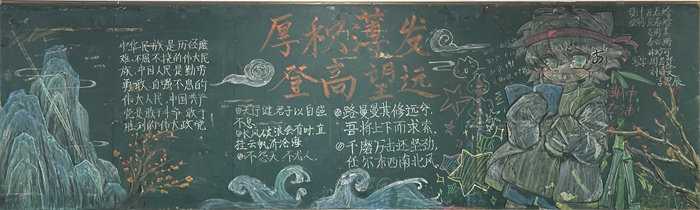 厚积薄发
登高望远
中华民族是历经磨
难、不屈不挠的伟大民
族，中国人民是勤劳
勇敢、自强不息的
伟大人民，中国共产
党是敢于斗争、敢于
胜利的伟大政党
天行健，君子以自强
不息
长风破浪会有时，直
挂云帆济沧海
不怨天，不尤人。
路曼曼其修远兮，
吾将上下而求索，
千磨万击还坚劲，
任尔东西南北风，